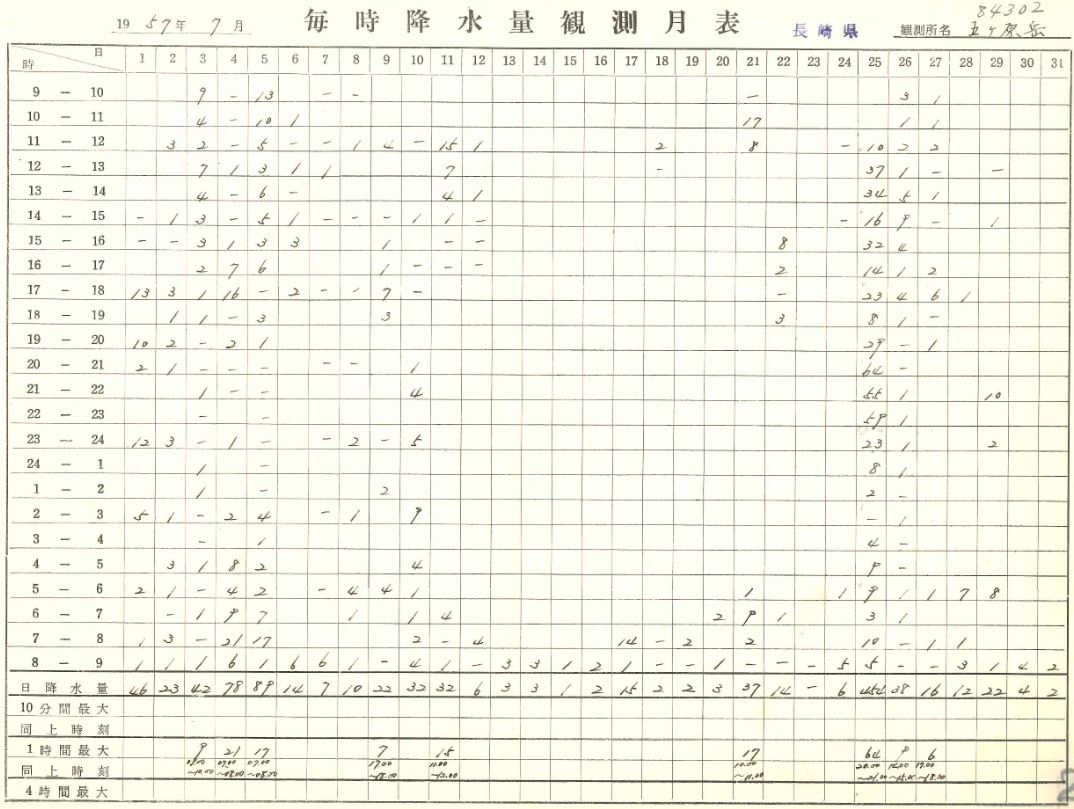 84302
1957年 7月 毎時降水量観測月表 長崎県 観測所名 五ヶ原岳
時 日 1 2 3 4 5 6 7 8 9 10 11 12 13 14 15 16 17 18 19 20 21 22 23 24 25 26 27 28 29 30 31
9 - 10 9 - 13 - - - 3 1
10 - 11 4 - 10 1 17 1 1
11 - 12 3 2 - 5 - - 1 4 - 15 1 2 8 - 10 2 2
12 - 13 7 1 3 1 1 7 - 37 1 - -
13 - 14 4 - 6 - 4 1 34 5 1
14 - 15 - 1 3 - 5 1 - - - 1 1 - - 16 9 - 1
15 - 16 - - 3 1 3 3 1 - - 8 32 4
16 - 17 2 7 6 1 - - - 2 14 1 2
17 - 18 13 3 1 16 - 2 - - 7 - - 23 4 6 1
18 - 19 1 1 - 3 3 3 8 1 -
19 - 20 10 2 - 2 1 29 - 1
20 - 21 2 1 - - - - - 1 64 -
21 - 22 1 - - 4 55 1 10
22 - 23 - - 59 1
23 - 24 12 3 - 1 - - 2 - 5 23 1 2
24 - 1 1 - 8 1
1 - 2 1 - 2 2 -
2 - 3 5 1 - 2 4 - 1 9 - 1
3 - 4 - 1 4 -
4 - 5 3 1 8 2 4 9 -
5 - 6 2 1 - 4 2 - 4 4 1 1 1 9 1 1 7 8
6 - 7 - 1 9 7 1 1 4 2 9 1 3 1
7 - 8 1 3 - 21 17 2 - 4 14 - 2 2 10 - 1 1
8 - 9 1 1 1 6 1 6 6 1 - 4 1 - 3 3 1 2 1 - - 1 - - - 5 5 - - 3 1 4 2
日降水量 46 23 42 78 89 14 7 10 22 32 32 6 3 3 1 2 15 2 2 3 37 14 - 6 454 38 16 12 22 4 2
10分間最大
同上時刻
1時間最大 9 21 17 7 15 17 64 9 6
同上時刻 07.00 07.00 17.00 11.00 10.00 20.00 14.00 17.00
~10.00 ~08.00 ~08.00 ~18.00 ~12.00 ~11.00 ~21.00 ~15.00 ~18.00
4時間最大